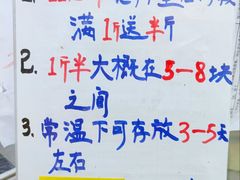 满1斤送半斤
2. 1斤半大概在3-8块
之间
3. 常温下可存放3-5天
左右